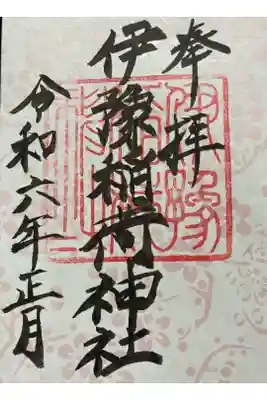 奉拝
伊豫稲荷神社
令和六年正月